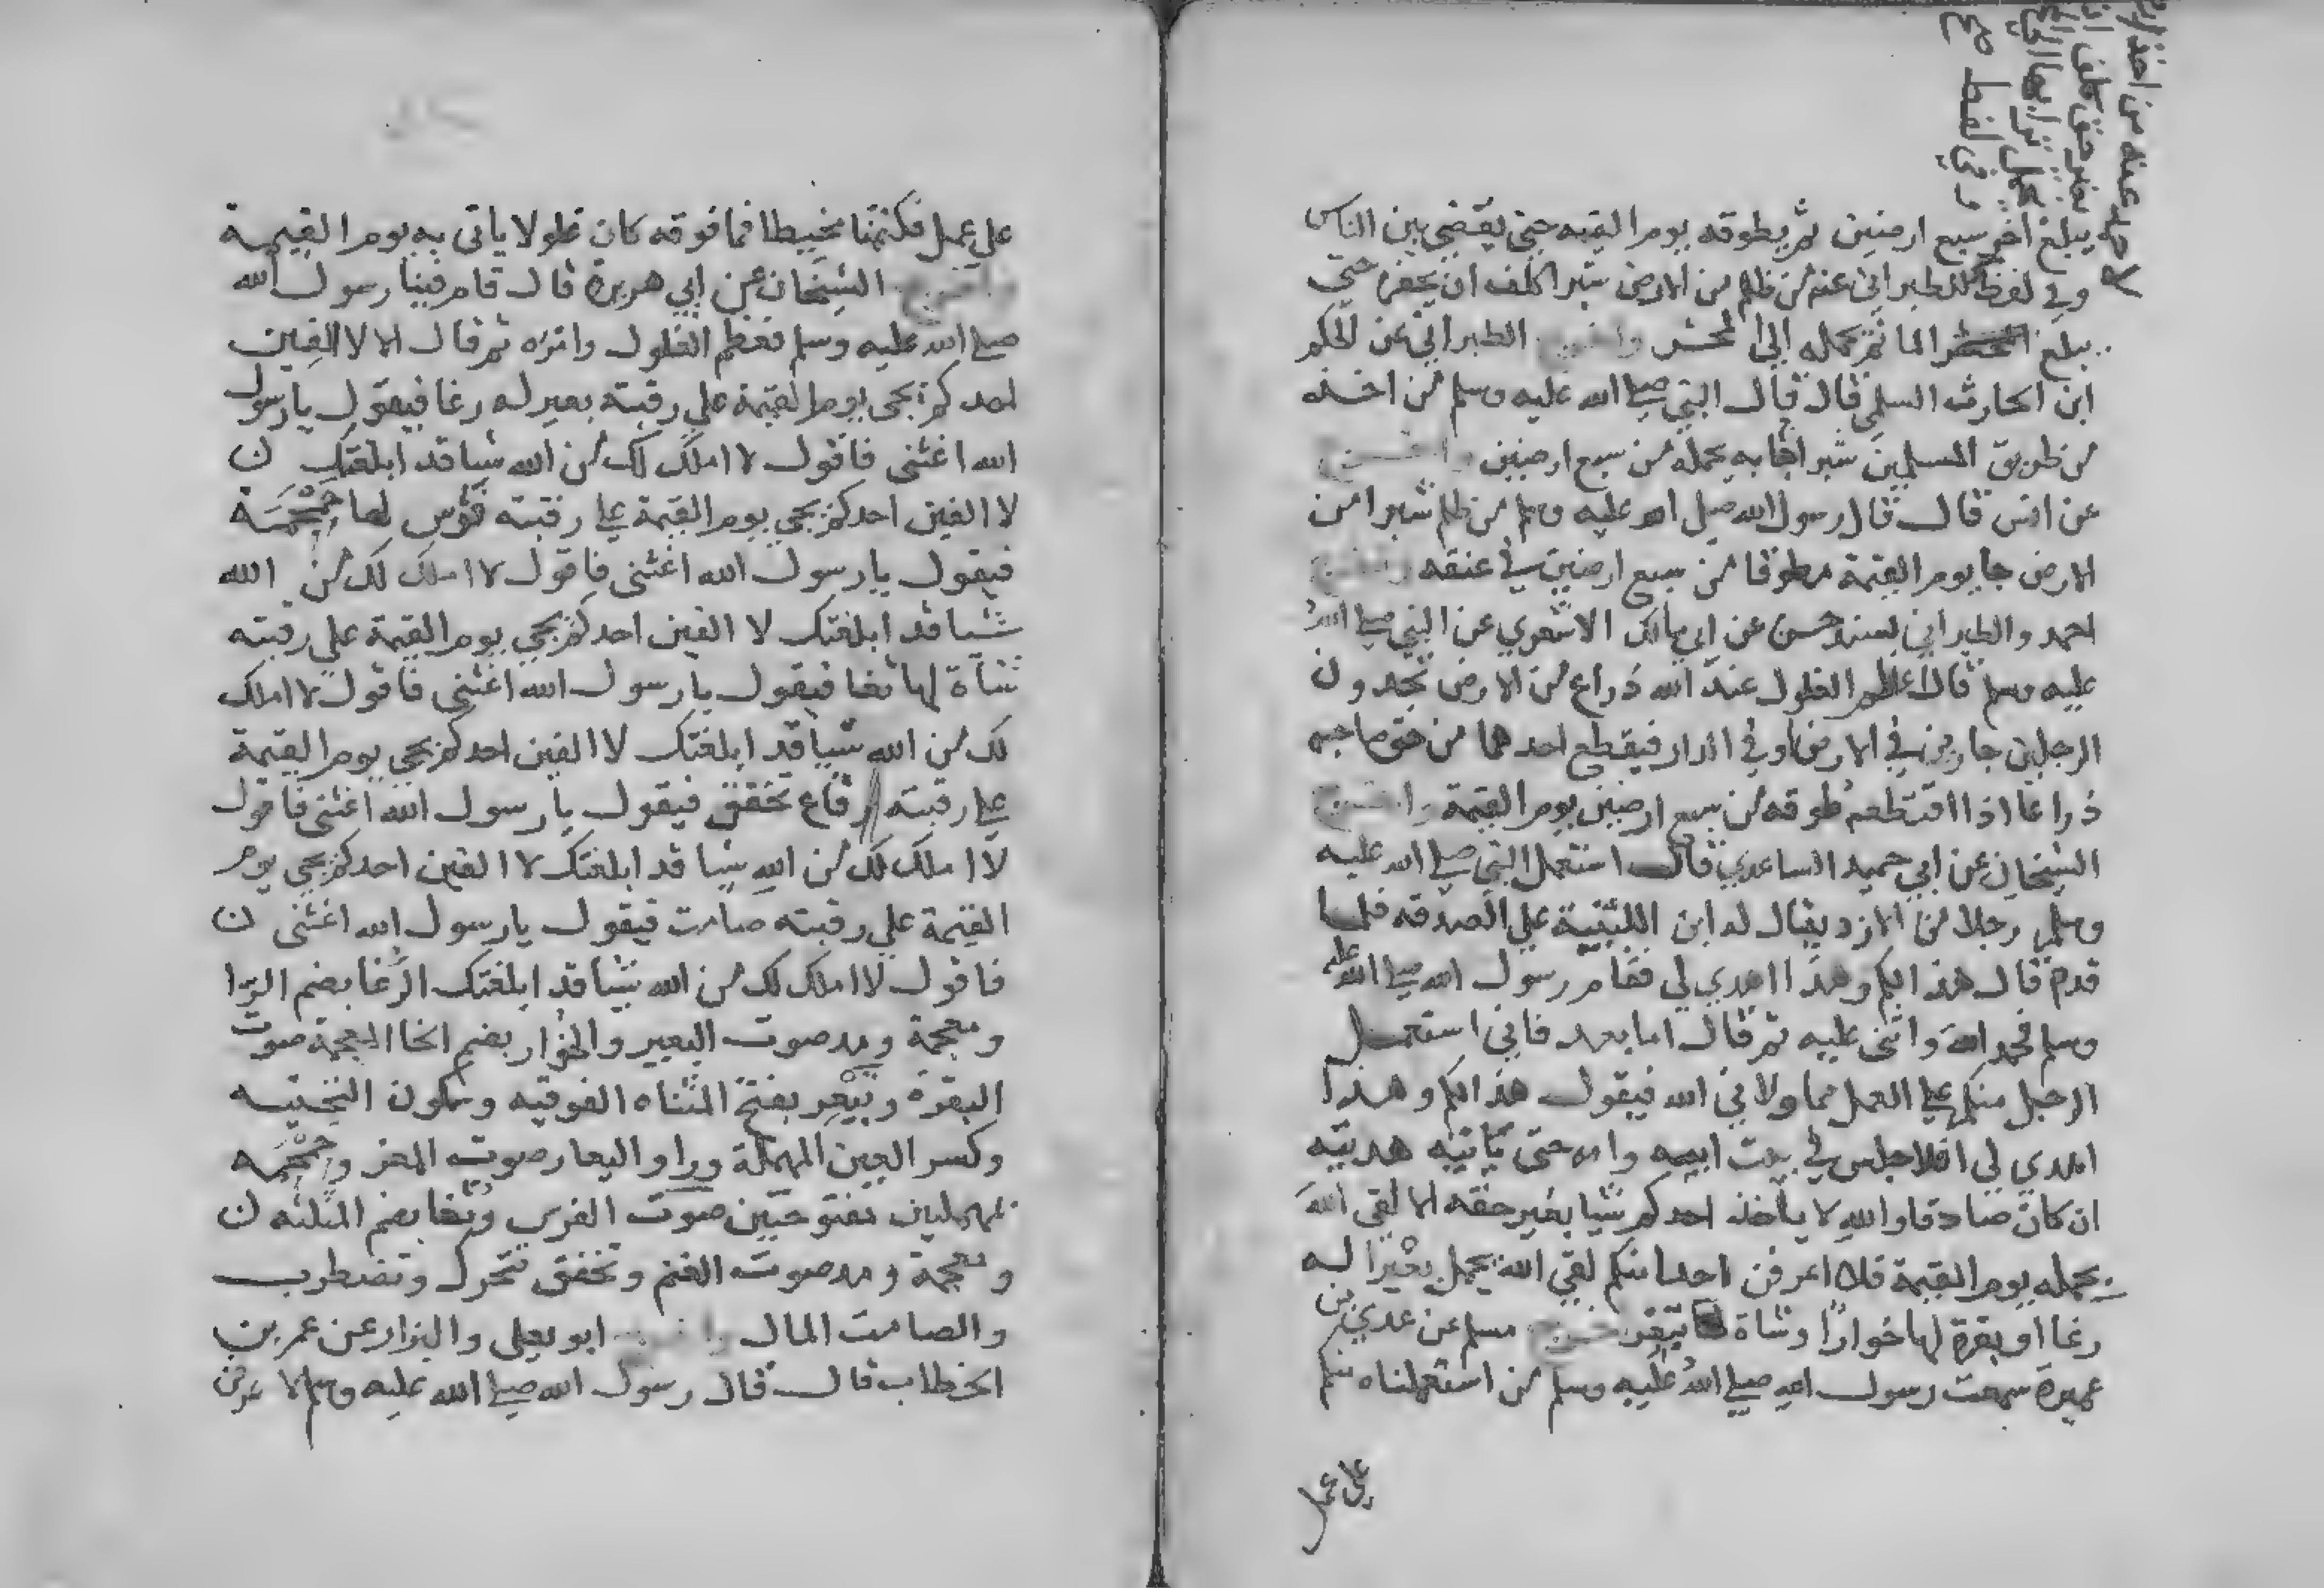 لاحمد عنه من اخذ ارضا
بغير حقه كلف ان
يحمل ترابها الى المحشر
وفي لفظ
يبلغ اخر سبع ارضين ثم يطوقه يوم القيمه حتى يقضى بين الناس
وفي لفظ للطبراني عنه من ظلم من الارض شبرا كلف ان يحفره حتى
يبلغ الما ثم يحمله الى المحشر واخرج الطبراني عن الحكم
ابن الحارث السلمي قال قال النبي صلى الله عليه وسلم من اخذ
من طريق المسلمين شبرا جا به يحمله من سبع ارضين واخرج
عن انس قال قال رسول الله صلى الله عليه وسلم من ظلم شبرا من
الارض جا يوم القيمة مطوقا من سبع ارضين في عنقه واخرج
احمد والطبراني بسند حسن عن ابي مالك الاشعري عن النبي صلى الله
عليه وسلم قال اعظم الغلول عند الله ذراع من الارض تجدون
الرجلين جارين في الارض او في الدار فيقطع احدهما من حق صاحبه
ذراعا اذا اقتطعه طوقه من سبع ارضين يوم القيمة واخرج
الشيخان عن ابي حميد الساعدي قال استعمل النبي صلى الله عليه
وسلم رجلا من الازد يقال له ابن اللتبية على الصدقه فلما
قدم قال هذا لكم وهذا اهدي لي فقام رسول الله صلى الله عليه
وسلم فحمد الله واثنى عليه ثم قال اما بعد فاني استعمل
الرجل منكم على العمل مما ولاني الله فيقول هذا لكم وهذا
اهدي لي افلا جلس في بيت ابيه وامه حتى تاتيه هديته
ان كان صادقا والله لا ياخذ احدكم شيا بغير حقه الا لقي الله
يحمله يوم القيمة فلا اعرفن احدا منكم لقي الله يحمل بعيرا له
رغا او بقرة لها خوارا وشاة تيعر واخرج مسلم عن عدي بن
عميرة سمعت رسول الله صلى الله عليه وسلم من استعملناه منكم
على عمل
على عمل فكتمنا مخيطا فما فوقه كان غلولا ياتي به يوم القيمة
واخرج الشيخان عن ابي هريرة قال قام فينا رسول الله
صلى الله عليه وسلم فعظم الغلول وامره ثم قال الا لا الفين
احدكم يجي يوم القيمة على رقبته بعير له رغا فيقول يا رسول
الله اغثني فاقول لا املك لك من الله شيا قد ابلغتك
لا الفين احدكم يجي يوم القيمة على رقبته فرس لها حمحمة
فيقول يا رسول الله اغثني فاقول لا املك لك من الله
شيا قد ابلغتك لا الفين احدكم يجي يوم القيمة على رقبته
شاة لها ثغا فيقول يا رسول الله اغثني فاقول لا املك
لك من الله شيا قد ابلغتك لا الفين احدكم يجي يوم القيمة
على رقبته رقاع تخفق فيقول يا رسول الله اغثني فاقول
لا املك لك من الله شيا قد ابلغتك لا الفين احدكم يجي يوم
القيمة على رقبته صامت فيقول يا رسول الله اغثني
فاقول لا املك لك من الله شيا قد ابلغتك الرغا بضم الرا
ومعجمة ومد صوت البعير والخوار بضم الخا المعجمة صوت
البقرة وتيعر بفتح المثناه الفوقيه وسكون التحتيه
وكسر العين المهملة ورا واليعار صوت المعز وحمحمه
بمهملتين مفتوحتين صوت الفرس وثغا بضم المثلثه
ومعجمة ومد صوت الغنم وتخفق تتحرك وتضطرب
والصامت المال واخرج ابو يعلى والبزار عن عمر بن
الخطاب قال قال رسول الله صلى الله عليه وسلم لا عرفن